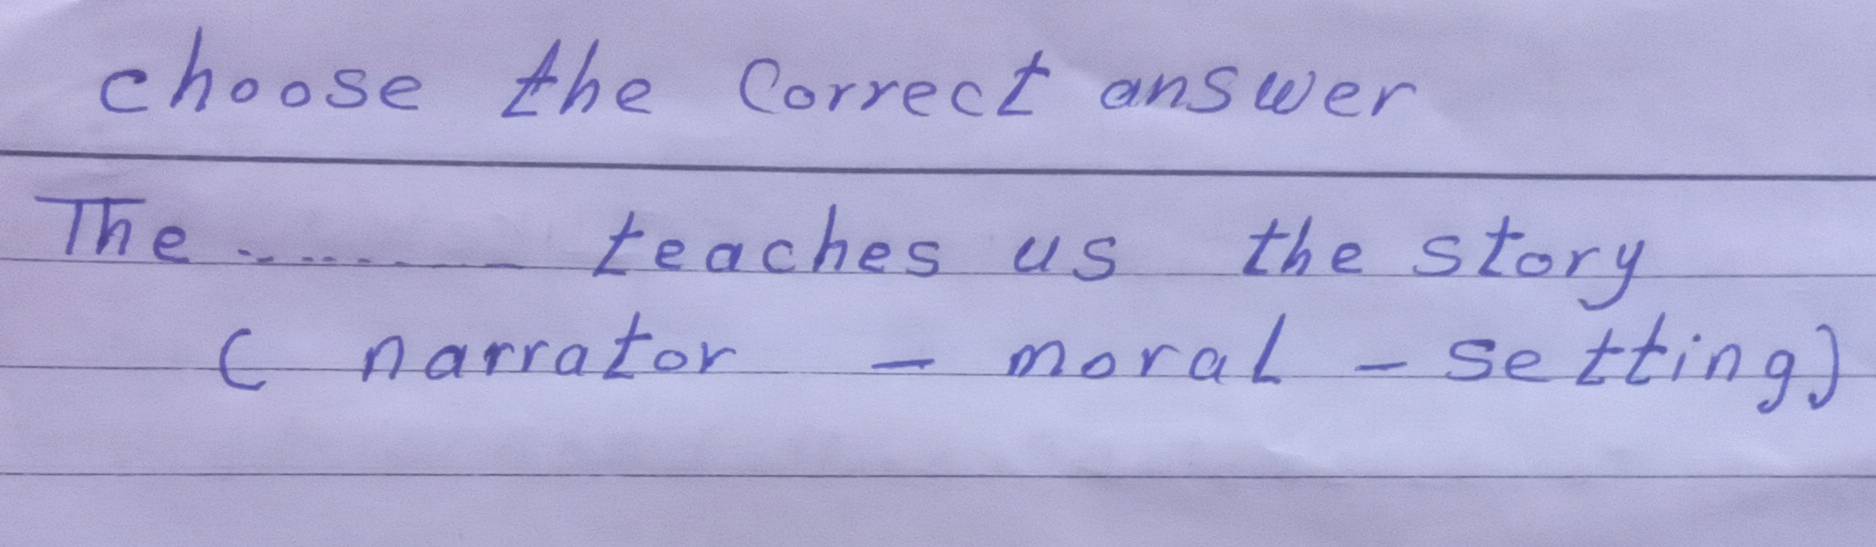 choose the Correct answer
The ......... teaches us the story
( narrator - moral - setting)